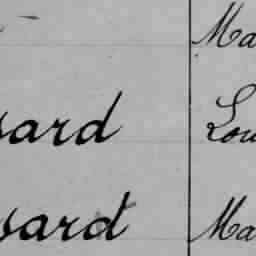 Ma
sard Lou
sard Ma